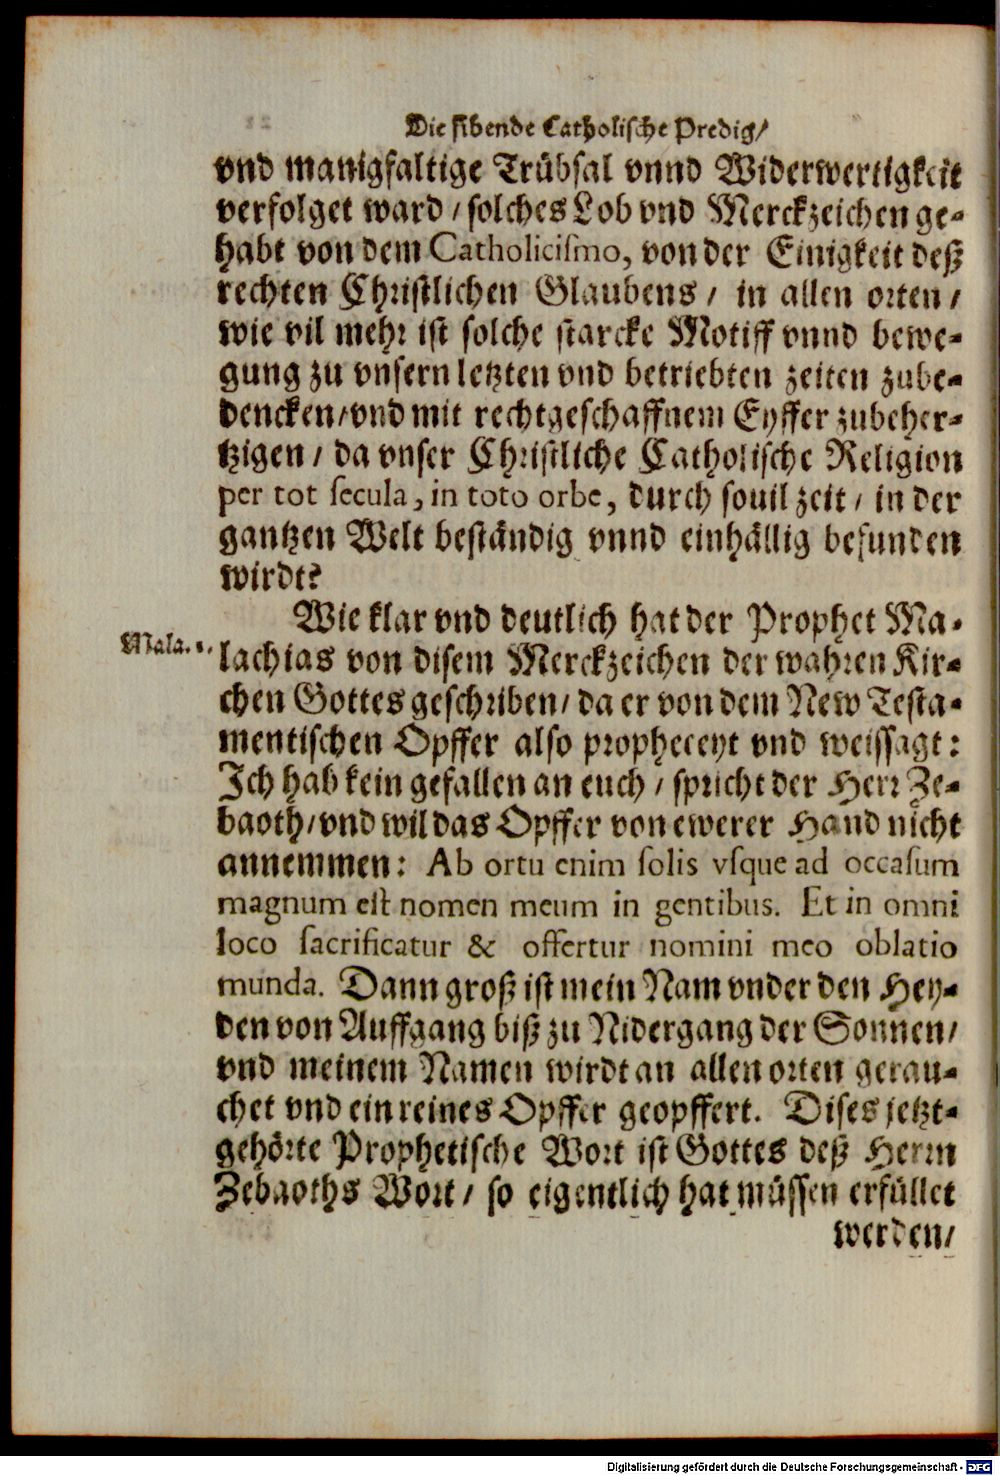 Die sibende Catholische Predig/
vnd manigfaltige Trübsal vnnd Widerwertigkeit
verfolget ward / solches Lob vnd Merckzeichen ge-
habt von dem Catholicismo, von der Einigkeit deß
rechten Christlichen Glaubens / in allen orten /
wie vil mehr ist solche starcke Motiff vnnd bewe-
gung zu vnsern letzten vnd betriebten zeiten zube-
dencken/vnd mit rechtgeschaffnem Eyffer zubeher-
tzigen / da vnser Christliche Catholische Religion
per tot secula, in toto orbe, durch souil zeit / in der
gantzen Welt beständig vnnd einhällig befunden
wirdt?
Wie klar vnd deutlich hat der Prophet Ma-
Mala. 1.
lachias von disem Merckzeichen der wahren Kir-
chen Gottes geschriben/ da er von dem New Testa-
mentischen Opffer also propheceyt vnd weissagt:
Ich hab kein gefallen an euch / spricht der Herr Ze-
baoth/vnd wil das Opffer von ewerer Hand nicht
annemmen: Ab ortu enim solis vsque ad occasum
magnum est nomen meum in gentibus. Et in omni
loco sacrificatur & offertur nomini meo oblatio
munda. Dann groß ist mein Nam vnder den Hey-
den von Auffgang biß zu Nidergang der Sonnen/
vnd meinem Namen wirdt an allen orten gerau-
chet vnd ein reines Opffer geopffert. Dises jetzt-
gehörte Prophetische Wort ist Gottes deß Herrn
Zebaoths Wort / so eigentlich hat müssen erfüllet
werden/
Digitalisierung gefördert durch die Deutsche Forschungsgemeinschaft - DFG